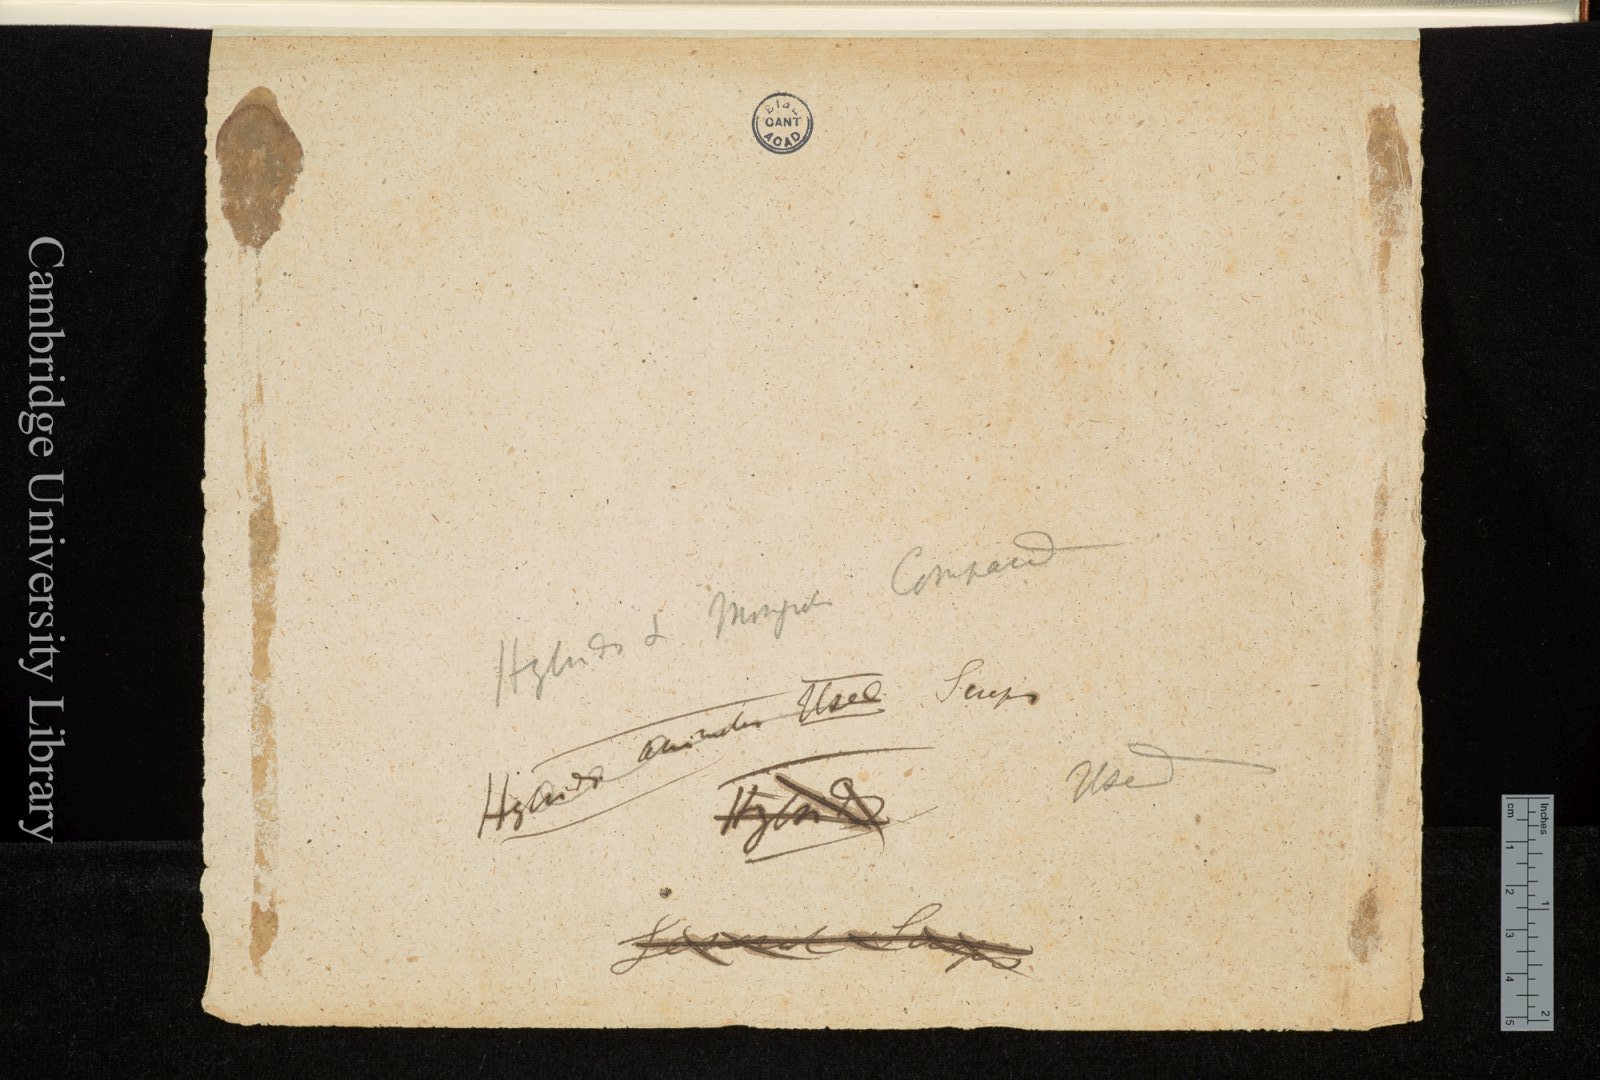 BIBL
CANT
ACAD
Hybrids & Mongrels Compared
Hybrids Used Scraps
Hybrids
Used
Scraps
Cambridge University Library
Inches 1 2
cm 1 2 3 4 5